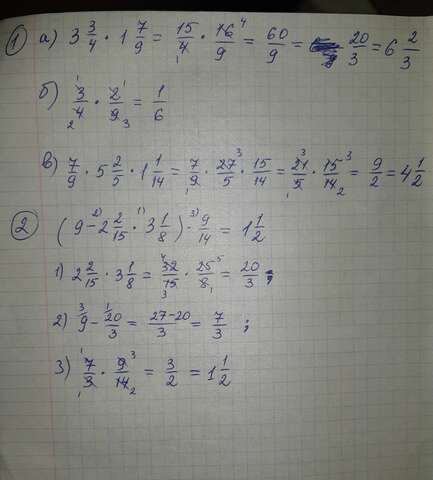 1 а) 3 3/4 · 1 7/9 = 15/4 · 16/9 = 60/9 = 20/3 = 6 2/3
б) 3/4 · 2/9 = 1/6
в) 7/9 · 5 2/5 · 1 1/14 = 7/9 · 27/5 · 15/14 = 21/5 · 15/14 = 9/2 = 4 1/2
2 (9 - 2 2/15 · 3 1/8) · 9/14 = 1 1/2
1) 2 2/15 · 3 1/8 = 32/15 · 25/8 = 20/3 ;
2) 9 - 20/3 = 27-20/3 = 7/3 ;
3) 7/3 · 9/14 = 3/2 = 1 1/2